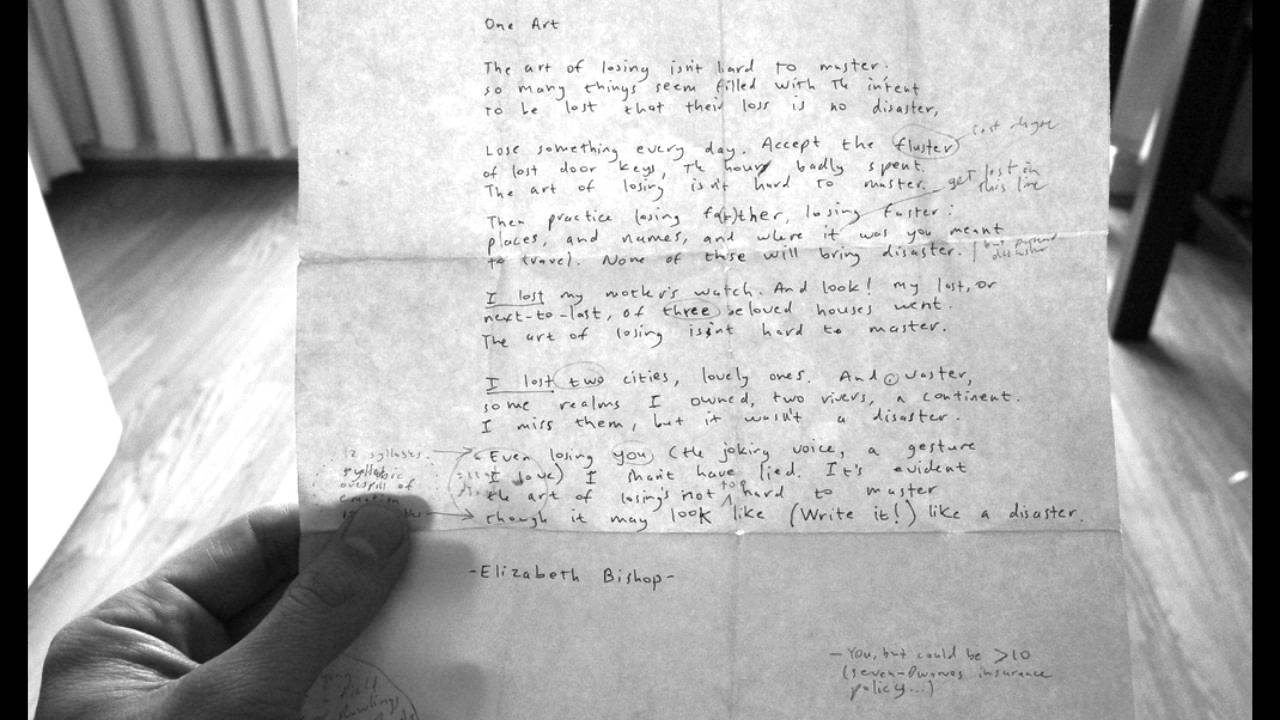 One Art
The art of losing isn't hard to master.
so many things seem filled with the intent
to be lost that their loss is no disaster,
Lose something every day. Accept the fluster
of lost door keys, the hour badly spent.
The art of losing isn't hard to master.
get lost in
this line
Then practice losing fa(r)ther, losing faster:
places, and names, and where it was you meant
to travel. None of these will bring disaster.
I lost my mother's watch. And look! my last, or
next-to-last, of three beloved houses went.
The art of losing isn't hard to master.
I lost two cities, lovely ones. And, vaster,
some realms I owned, two rivers, a continent.
I miss them, but it wasn't a disaster.
12 syllables.
syllabic
overspill of
Even losing you (the joking voice, a gesture
I love) I shan't have lied. It's evident
the art of losing's not too hard to master
though it may look like (Write it!) like a disaster.
-Elizabeth Bishop-
- You, but could be >10
(seven-Dwarves insurance
policy...)